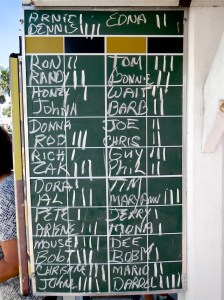 ARNIE EDNA ||
DENNIS ||||
RON || TOM
RANDY ||| DONNIE
HONEY WAIT
JOHNA BARB ||
DONNA JOE
ROD ||| CHRIS
RICH GUY
ZAK PHIL
DORA TIM
AL MARYANN |||
PETE JERRY
ARLENE ||| MONA
MOUSE DEE
BOB BOB
CHRISTINE MARIO
JOHN DARREL